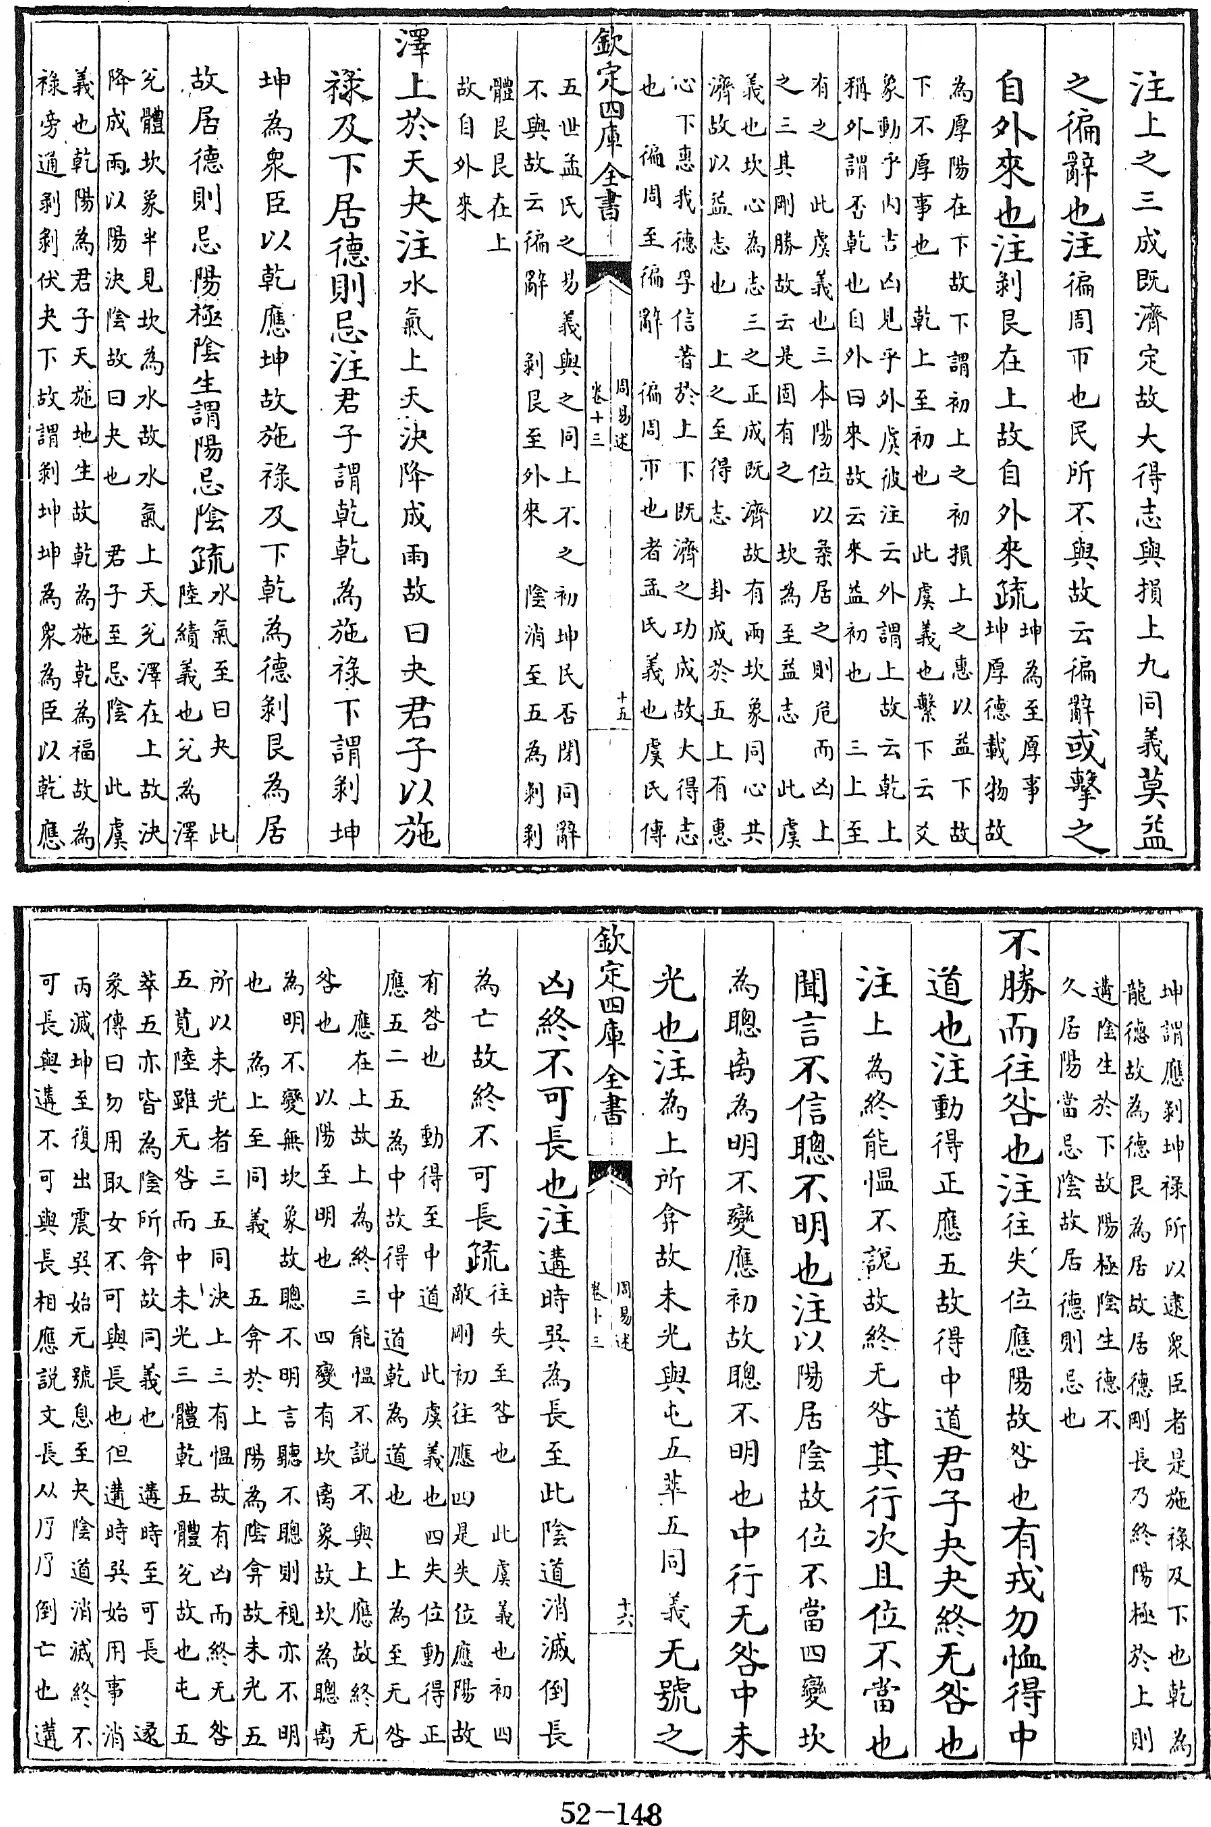 注上之三成既濟定故大得志與損上九同義莫益
之徧辭也注徧周帀也民所不與故云徧辭或擊之
自外來也注剥艮在上故自外來疏坤為至厚事
坤厚德載物故
為厚陽在下故下謂初上之初損上之惠以益下故
下不厚事也 乾上至初也 此虞義也繫下云爻
象動乎内吉凶見乎外虞彼注云外謂上故云乾上
稱外謂否乾也自外曰來故云來益初也 三上至
有之 此虞義也三本陽位以柔居之則危而凶上
之三其剛勝故云是固有之 坎為至益志 此虞
義也坎心為志三之正成既濟故有兩坎象同心共
濟故以益志也 上之至得志 卦成於五上有惠
心下惠我德孚信著於上下既濟之功成故大得志
也 徧周至徧辭 徧周帀也者孟氏義也虞氏傳
欽定四庫全書
周易述
卷十三
十五
五世孟氏之易義與之同上不之初坤民否閉同辭
不與故云徧辭 剥艮至外來 陰消至五為剥剥
體艮艮在上
故自外來
澤上於天夬注水氣上天決降成雨故曰夬君子以施
禄及下居德則忌注君子謂乾乾為施禄下謂剥坤
坤為衆臣以乾應坤故施禄及下乾為德剥艮為居
故居德則忌陽極陰生謂陽忌陰疏水氣至曰夬 此
陸績義也兌為澤
兌體坎象半見坎為水故水氣上天兌澤在上故決
降成雨以陽決陰故曰夬也 君子至忌陰 此虞
義也乾陽為君子天施地生故乾為施乾為福故為
禄旁通剥剥伏夬下故謂剥坤坤為衆為臣以乾應
坤謂應剥坤禄所以逮衆臣者是施禄及下也乾為
龍德故為德艮為居故居德剛長乃終陽極於上則
遘陰生於下故陽極陰生德不
久居陽當忌陰故居德則忌也
不勝而往咎也注往失位應陽故咎也有戎勿恤得中
道也注動得正應五故得中道君子夬夬終无咎也
注上為終能愠不說故終无咎其行次且位不當也
聞言不信聰不明也注以陽居陰故位不當四變坎
為聰离為明不變應初故聰不明也中行无咎中未
光也注為上所弇故未光與屯五萃五同義无號之
欽定四庫全書
周易述
卷十三
十六
凶終不可長也注遘時巽為長至此陰道消滅倒長
為亡故終不可長疏往失至咎也 此虞義也初四
敵剛初往應四是失位應陽故
有咎也 動得至中道 此虞義也四失位動得正
應五二五為中故得中道乾為道也 上為至无咎
應在上故上為終三能愠不說不與上應故終无
咎也 以陽至明也 四變有坎离象故坎為聰离
為明不變無坎象故聰不明言聽不聰則視亦不明
也 為上至同義 五弇於上陽為陰弇故未光五
所以未光者三五同決上三有愠故有凶而終无咎
五莧陸雖无咎而中未光三體乾五體兌故也屯五
萃五亦皆為陰所弇故同義也 遘時至可長 遘
彖傳曰勿用取女不可與長也但遘時巽始用事消
丙滅坤至復出震巽始无號息至夬陰道消滅終不
可長與遘不可與長相應說文長从𠂆𠂆倒亡也遘
52-148